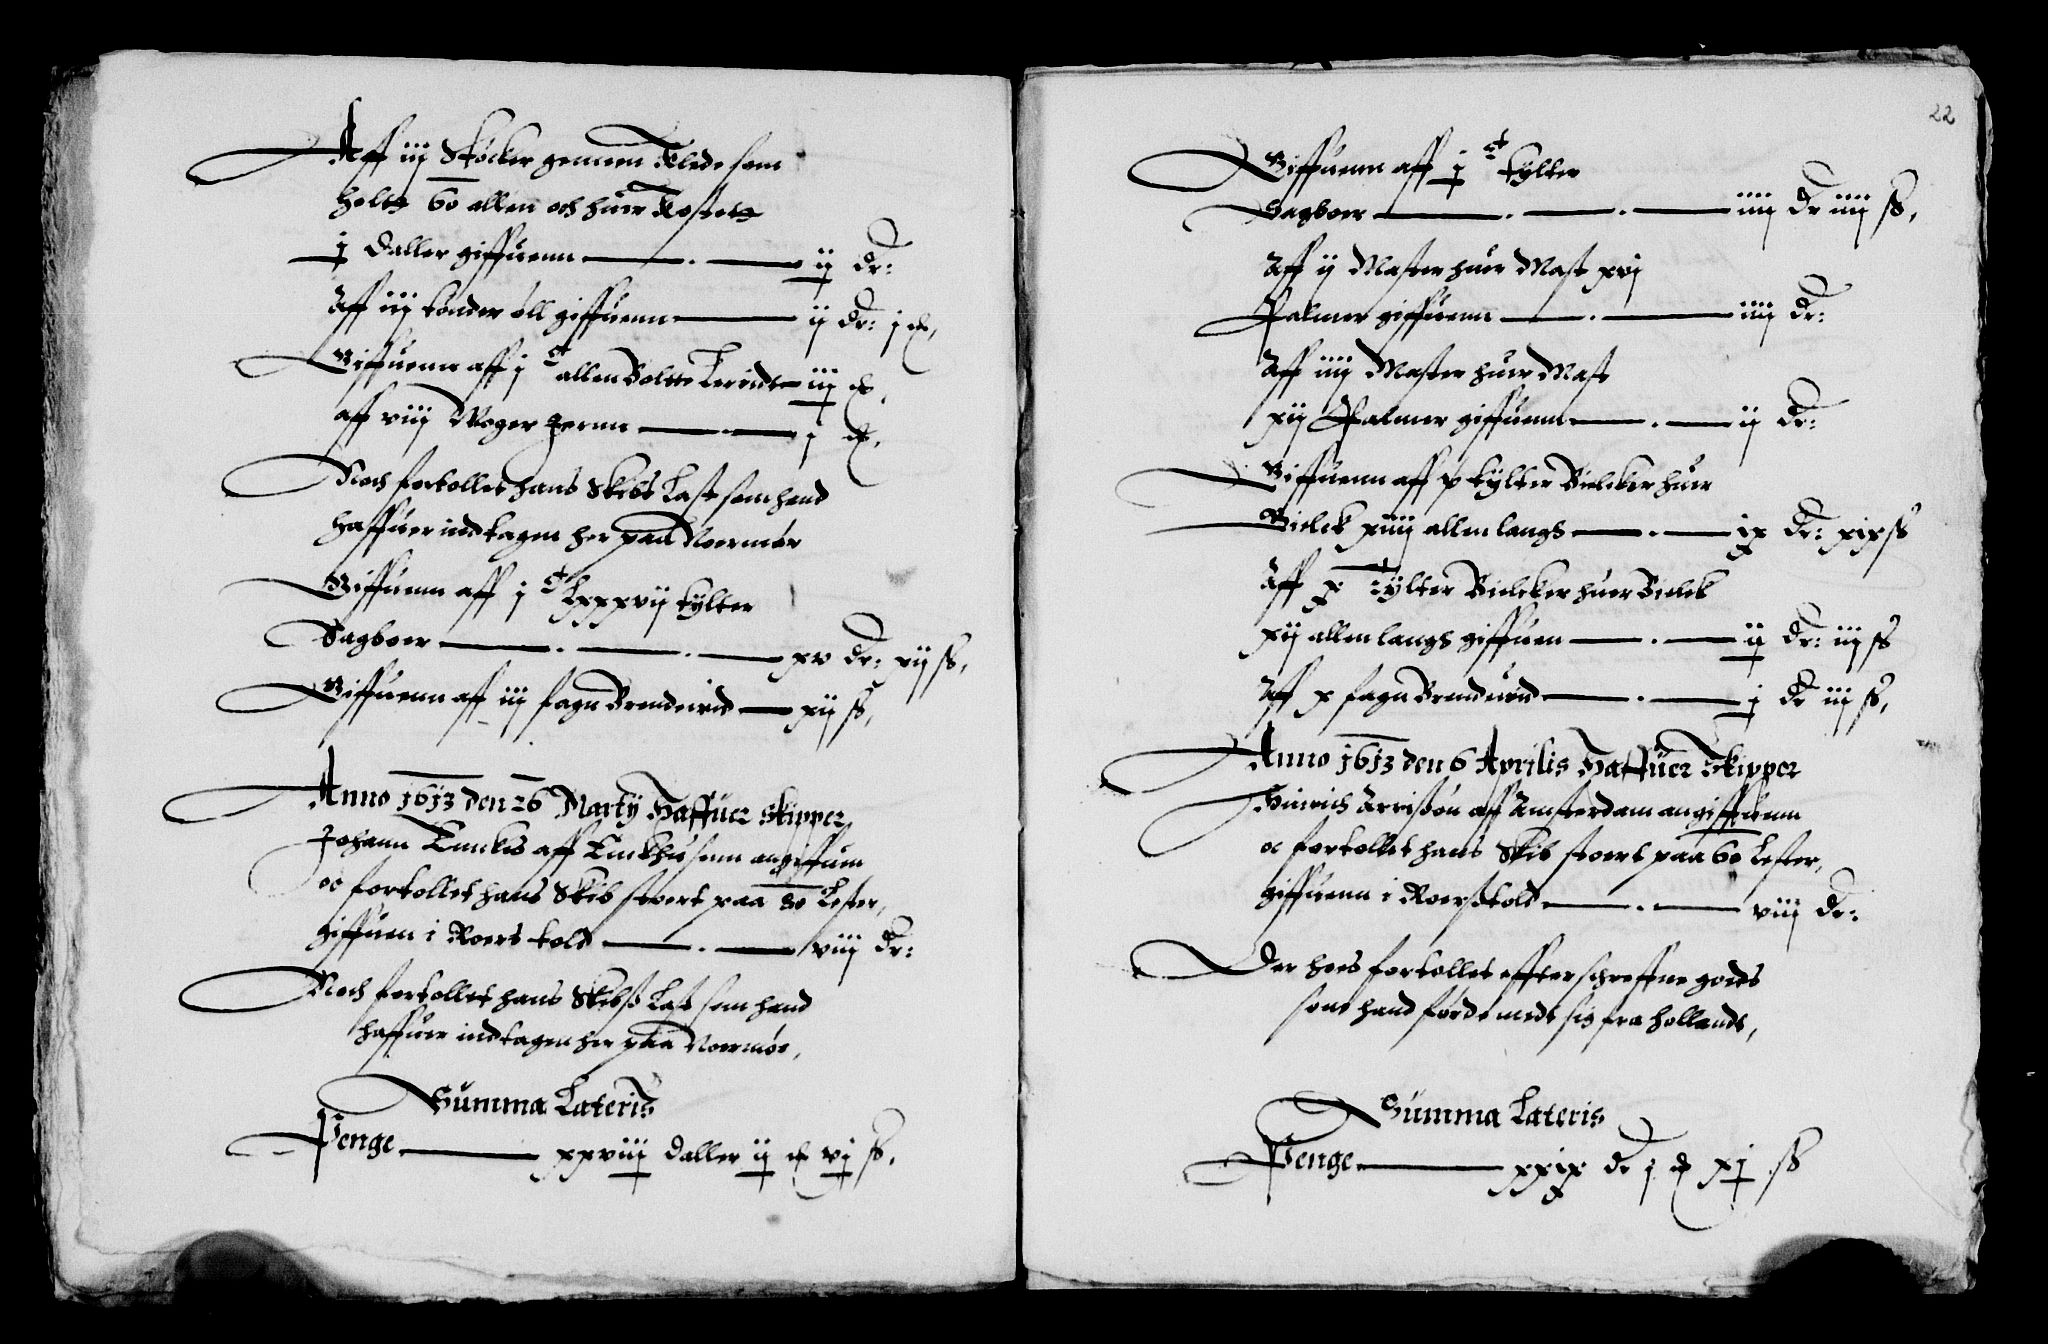 Aff iij Støcker gemeen Klede som
holtt 60 allen och huer kostett
j daller giffuenn ij dr:
Aff iiij tønder øll giffuenn ij dr: j ℔,
Giffuenn aff j c allen Boltte Leriidt iij ℔,
aff viij Woger Jernn j ℔,
Noch fortollet hans Skibs Last som hand
haffuer indtagen her paa Noermør
Giffuenn aff j c Lxxxvij tylter
Sagboer xv dr: xij ß,
Giffuenn aff iij fagn Brendeved xij ß,
Anno 1613 den 26 Martij Haffuer Skipper
Johann aff Enckhusenn angiffuen
oc fortollet hans Skib stoert paa 80 Lester,
giffuen i Roers told viij dr:
Noch fortollet hans Skibß Last som hand
haffuer indtagen her paa Noermør,
Summa Lateris
Penge xxviij daller ij ℔ vj ß,
22
Giffuenn aff j c tylter
Sagboer iiij dr iiij ß,
Aff ij Master huer Mast xvj
Palmer giffuenn iiij dr:
Aff iiij Master huer Mast
xij Palmer giffuenn ij dr:
Giffuenn aff x tylter Bielcker huer
Bielck xiiij allen langs ix dr: xix ß
Aff x tylter Bielcker huer Bielck
xij allen langs giffuen ij dr: iij ß
Aff x fagn Brendued j dr iij ß,
Anno 1613 den 6 Aprilis Haffuer Skipper
Hinrich Arrißøn aff Amsterdam angiffuenn
oc fortollet hans Skib stoert paa 60 Lester,
giffuenn i Roerßtold viij dr:
Der hoes fortollet effterschreffne godts
som hand førde medt sig fra Hollandt,
Summa Lateris
Penge xxix dr j ℔ xj ß